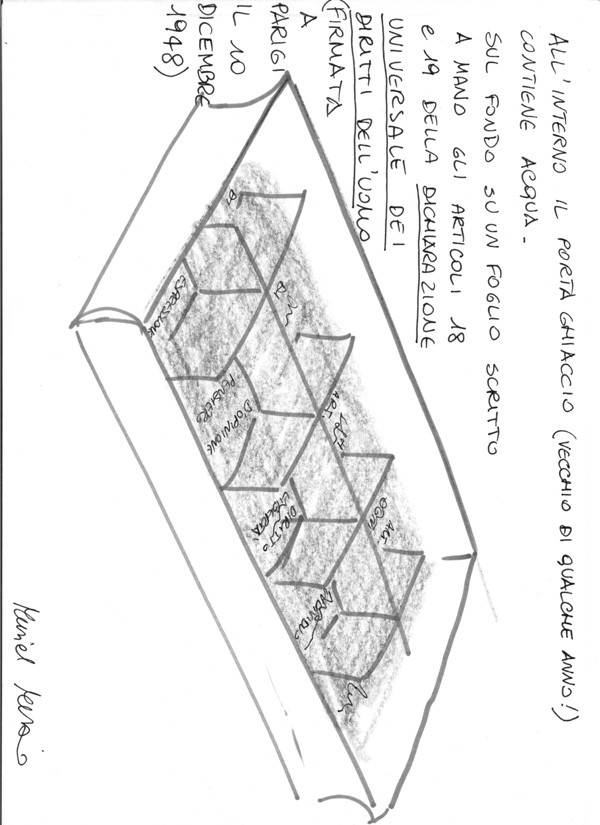 ALL'INTERNO IL PORTA GHIACCIO (VECCHIO DI QUALCHE ANNO!)
CONTIENE ACQUA.
SUL FONDO SU UN FOGLIO SCRITTO
A MANO GLI ARTICOLI 18
e 19 DELLA DICHIARAZIONE
UNIVERSALE DEI
DIRITTI DELL'UOMO
(FIRMATA
A
PARIGI
IL 10
DICEMBRE
1948)
DI
ESPRESSIONE
PENSIERO
D'OPINIONE
ART.
DIRITTO
LIBERTÀ
OGNI
INDIVIDUO
ART